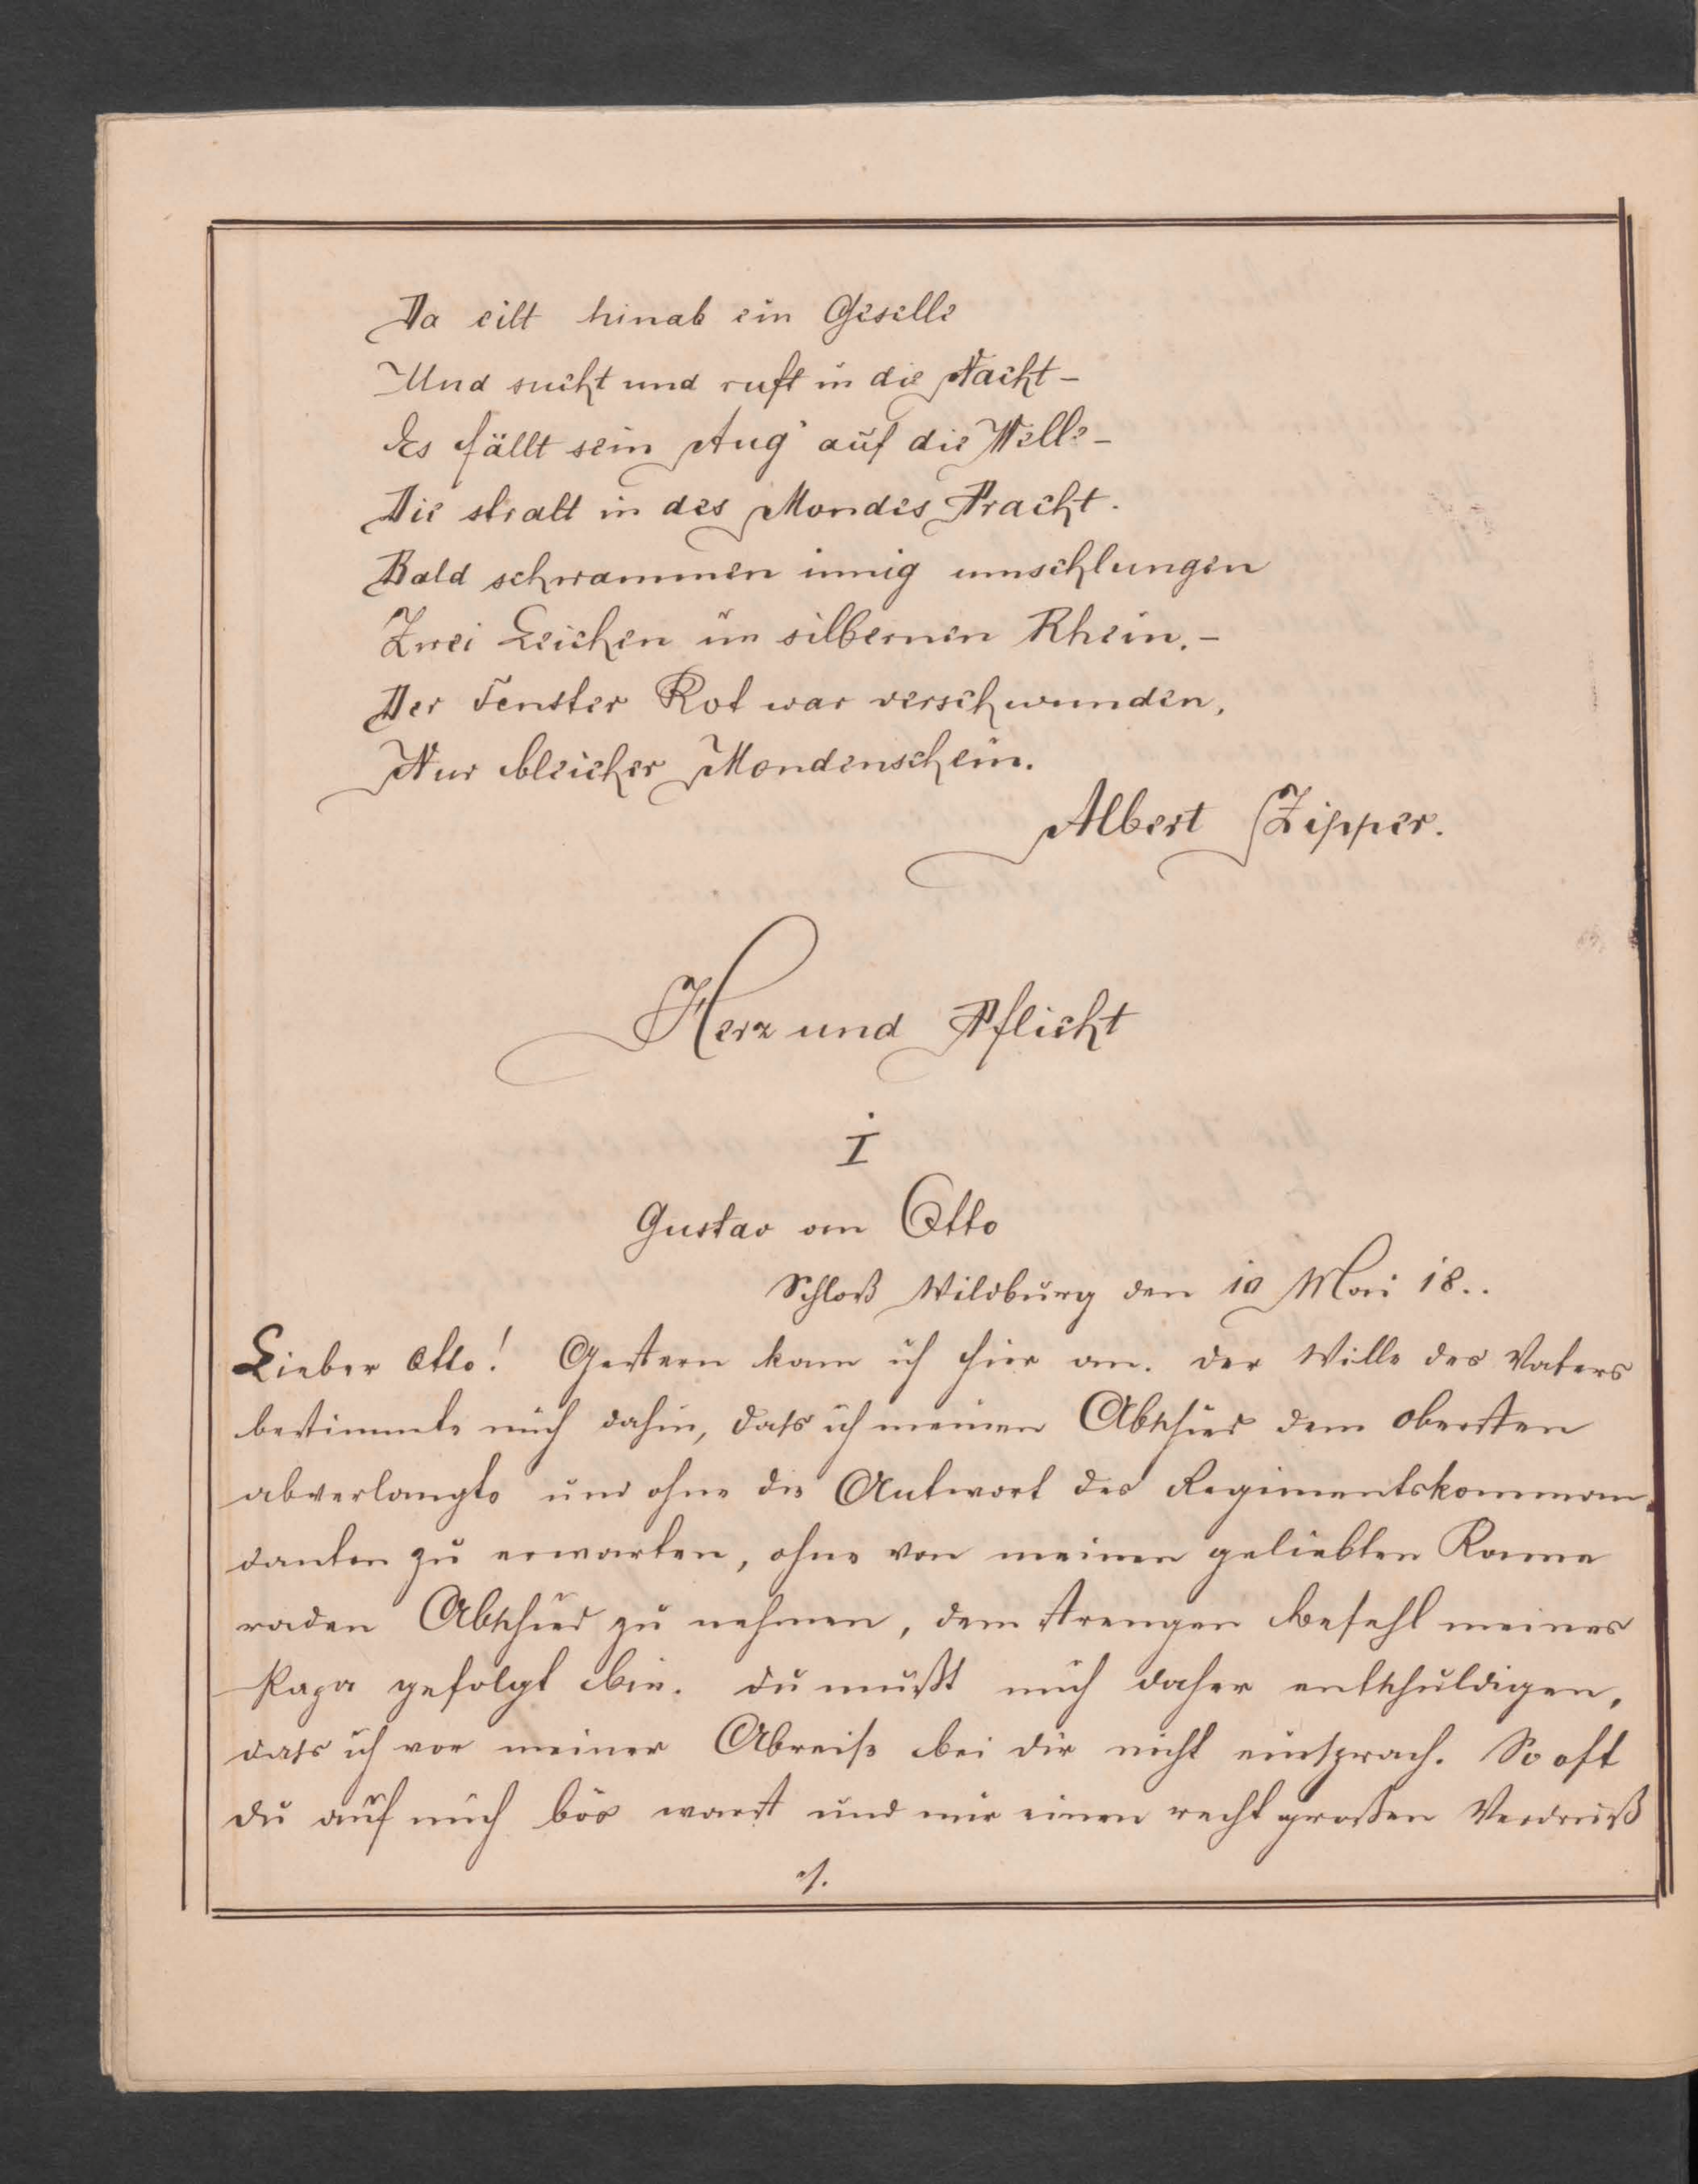 Da eilt hinab ein Geselle
Und sucht und ruft in die Nacht –
Es fällt sein Aug' auf die Welle –
Die stralt in des Mondes Pracht.
Bald schwammen innig umschlungen
Zwei Leichen im silbernen Rhein. –
Der Fenster Rot war verschwunden,
Nur bleicher Mondenschein.
Albert Zipper.
Herz und Pflicht
I
Gustav an Otto
Schloß Wildburg den 10 Mai 18..
Lieber Otto! Gestern kam ich hier an. Der Wille des Vaters
bestimmte mich dahin, dass ich meinen Abschied dem Obersten
abverlangte und ohne die Antwort des Regimentskomman
danten zu erwarten, ohne von meinen geliebten Kame
raden Abschied zu nehmen, dem strengen Befehl meines
Papa gefolgt bin. Du mußt mich daher entschuldigen,
dass ich vor meiner Abreise bei dir nicht einsprach. So oft
du auf mich bös warst und mir einen recht großen Verdruß